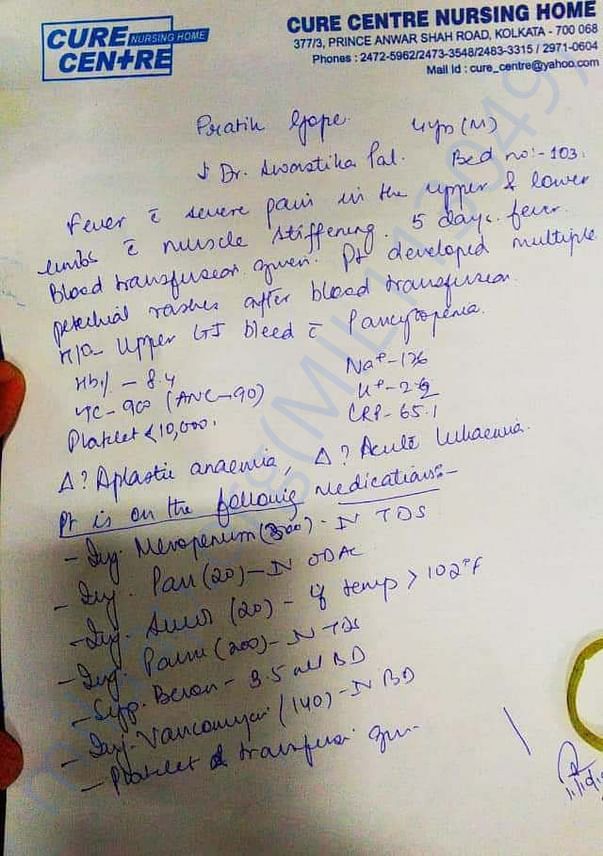 CURE
NURSING HOME
CENTRE
CURE CENTRE NURSING HOME
377/3, PRINCE ANWAR SHAH ROAD, KOLKATA - 700 068
Phones : 2472-5962/2473-3548/2483-3315 / 2971-0604
Mail Id : cure_centre@yahoo.com
Pratik Gope. 4yrs (M)
Dr. Swastika Pal. Bed no:- 103.
Fever c̄ severe pain in the upper & lower
limbs c̄ muscle stiffening. 5 days fever.
Blood transfusion given. Pt developed multiple
petechial rashes after blood transfusion.
H/O- Upper GI bleed c̄ Pancytopenia.
Hb% - 8.4
Na+ -126
TC- 900 (ANC-90)
K+ -2.2
Platelet <10,000.
CRP- 65.1
Δ? Aplastic anaemia, Δ? Acute leukaemia.
Pt is on the following medications:-
- Inj. Meropenem (300) - IV TDS
- Inj. Pan (20) - IV ODAC
- Inj. (20) - if temp > 102°F
- Inj. (200) - IV TDS
- Syp. - 3.5 ml BD
- Inj. Vancomycin (140) - IV BD
- Platelet transfusion given.